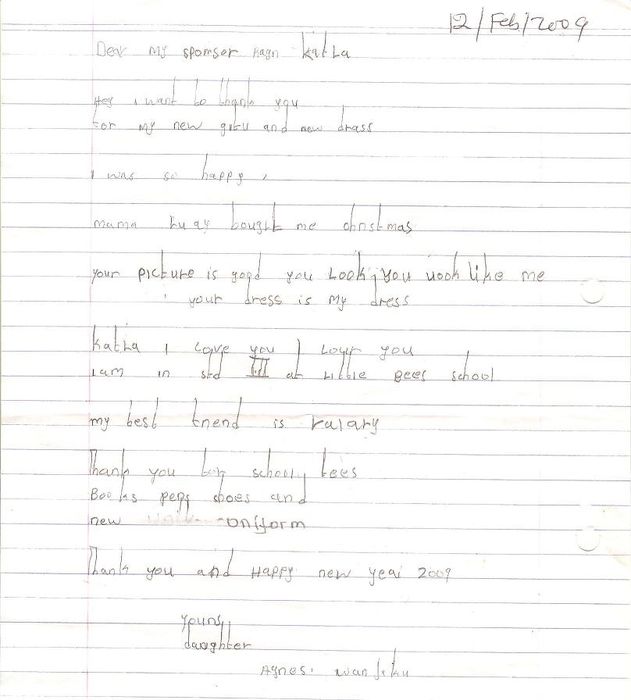 12/Feb/2009
Dear my sponser Kagn Katla
Hey i want to thank you
For my new gitu and new drass
I was so happy,
mama Lucy bought me christmas
your picture is good you Look, you Look like me
your dress is my dress
Katla I Love you I Love you
I am in std III at Little Bees school
my best friend is
Thank you for school fees
Books pens shoes and
new uniform
Thank you and Happy new year 2009
yours
daughter
Agnes. wanjiku